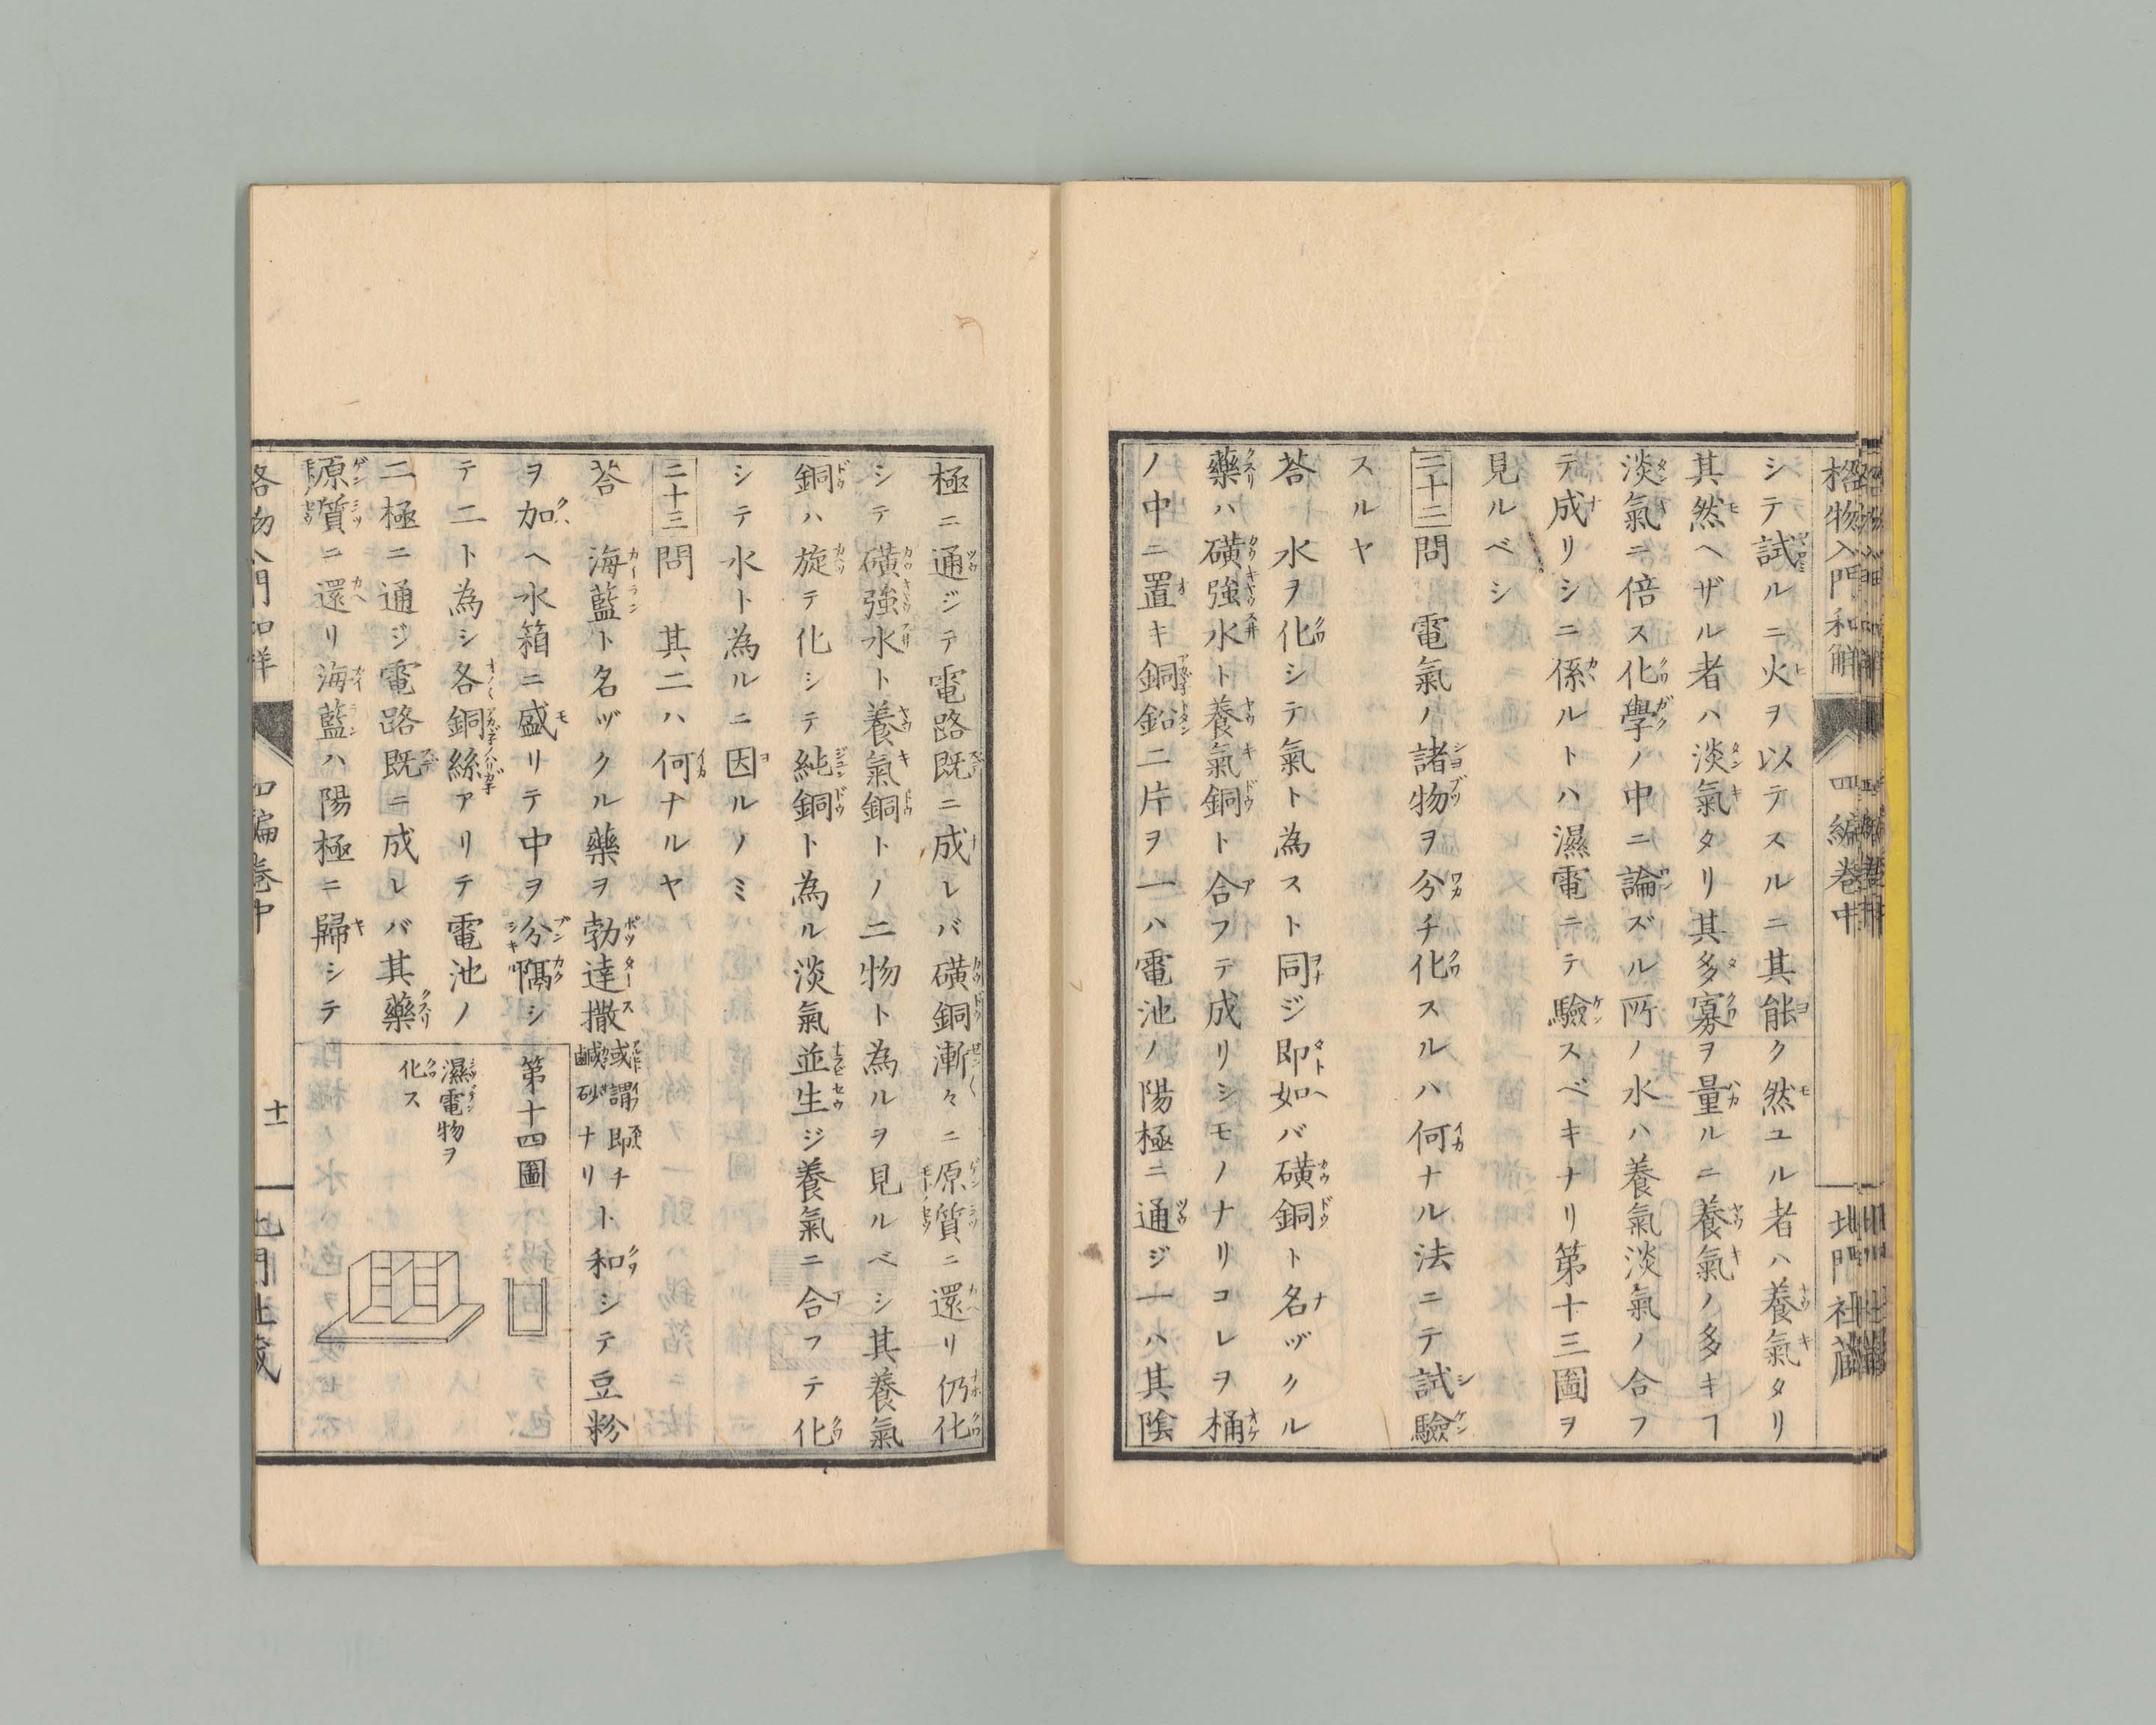 格物入門和解 四編巻中 北門社藏
シテ試ルニ火ヲ以テスルニ其能ク然ユル者ハ養氣タリ
其然ヘザル者ハ淡氣タリ其多寡ヲ量ルニ養氣ノ多キヿ
淡氣ニ倍ス化學ノ中ニ論ズル所ノ水ハ養氣淡氣ノ合フ
テ成リシニ係ルトハ濕電ニテ驗スベキナリ第十三圖ヲ
見ルベシ
二十二問 電氣ノ諸物ヲ分チ化スルハ何ナル法ニテ試驗
スルヤ
荅 水ヲ化シテ氣ト為スト同ジ即如バ磺銅ト名ヅクル
藥ハ磺強水ト養氣銅ト合フテ成リシモノナリコレヲ桶
ノ中ニ置キ銅鉛二片ヲ一ハ電池ノ陽極ニ通ジ一ハ其陰
極ニ通ジテ電路既ニ成レバ磺銅漸々ニ原質ニ還リ仍化
シテ磺強水ト養氣銅トノ二物ト為ルヲ見ルベシ其養氣
銅ハ旋テ化シテ純銅ト為ル淡氣並生ジ養氣ニ合フテ化
シテ水ト為ルニ因ルノミ
二十三問 其二ハ何ナルヤ
荅 海藍ト名ヅクル藥ヲ勃達撒或謂即チ鹹砂ナリト和シテ豆粉
ヲ加ヘ水箱ニ盛リテ中ヲ分隔シ
テ二ト為シ各銅絲アリテ電池ノ
二極ニ通ジ電路既ニ成レバ其藥
原質ニ還リ海藍ハ陽極ニ歸シテ
第十四圖
濕電物ヲ
化ス
格物入門和解 四編巻中 十一 北門社藏